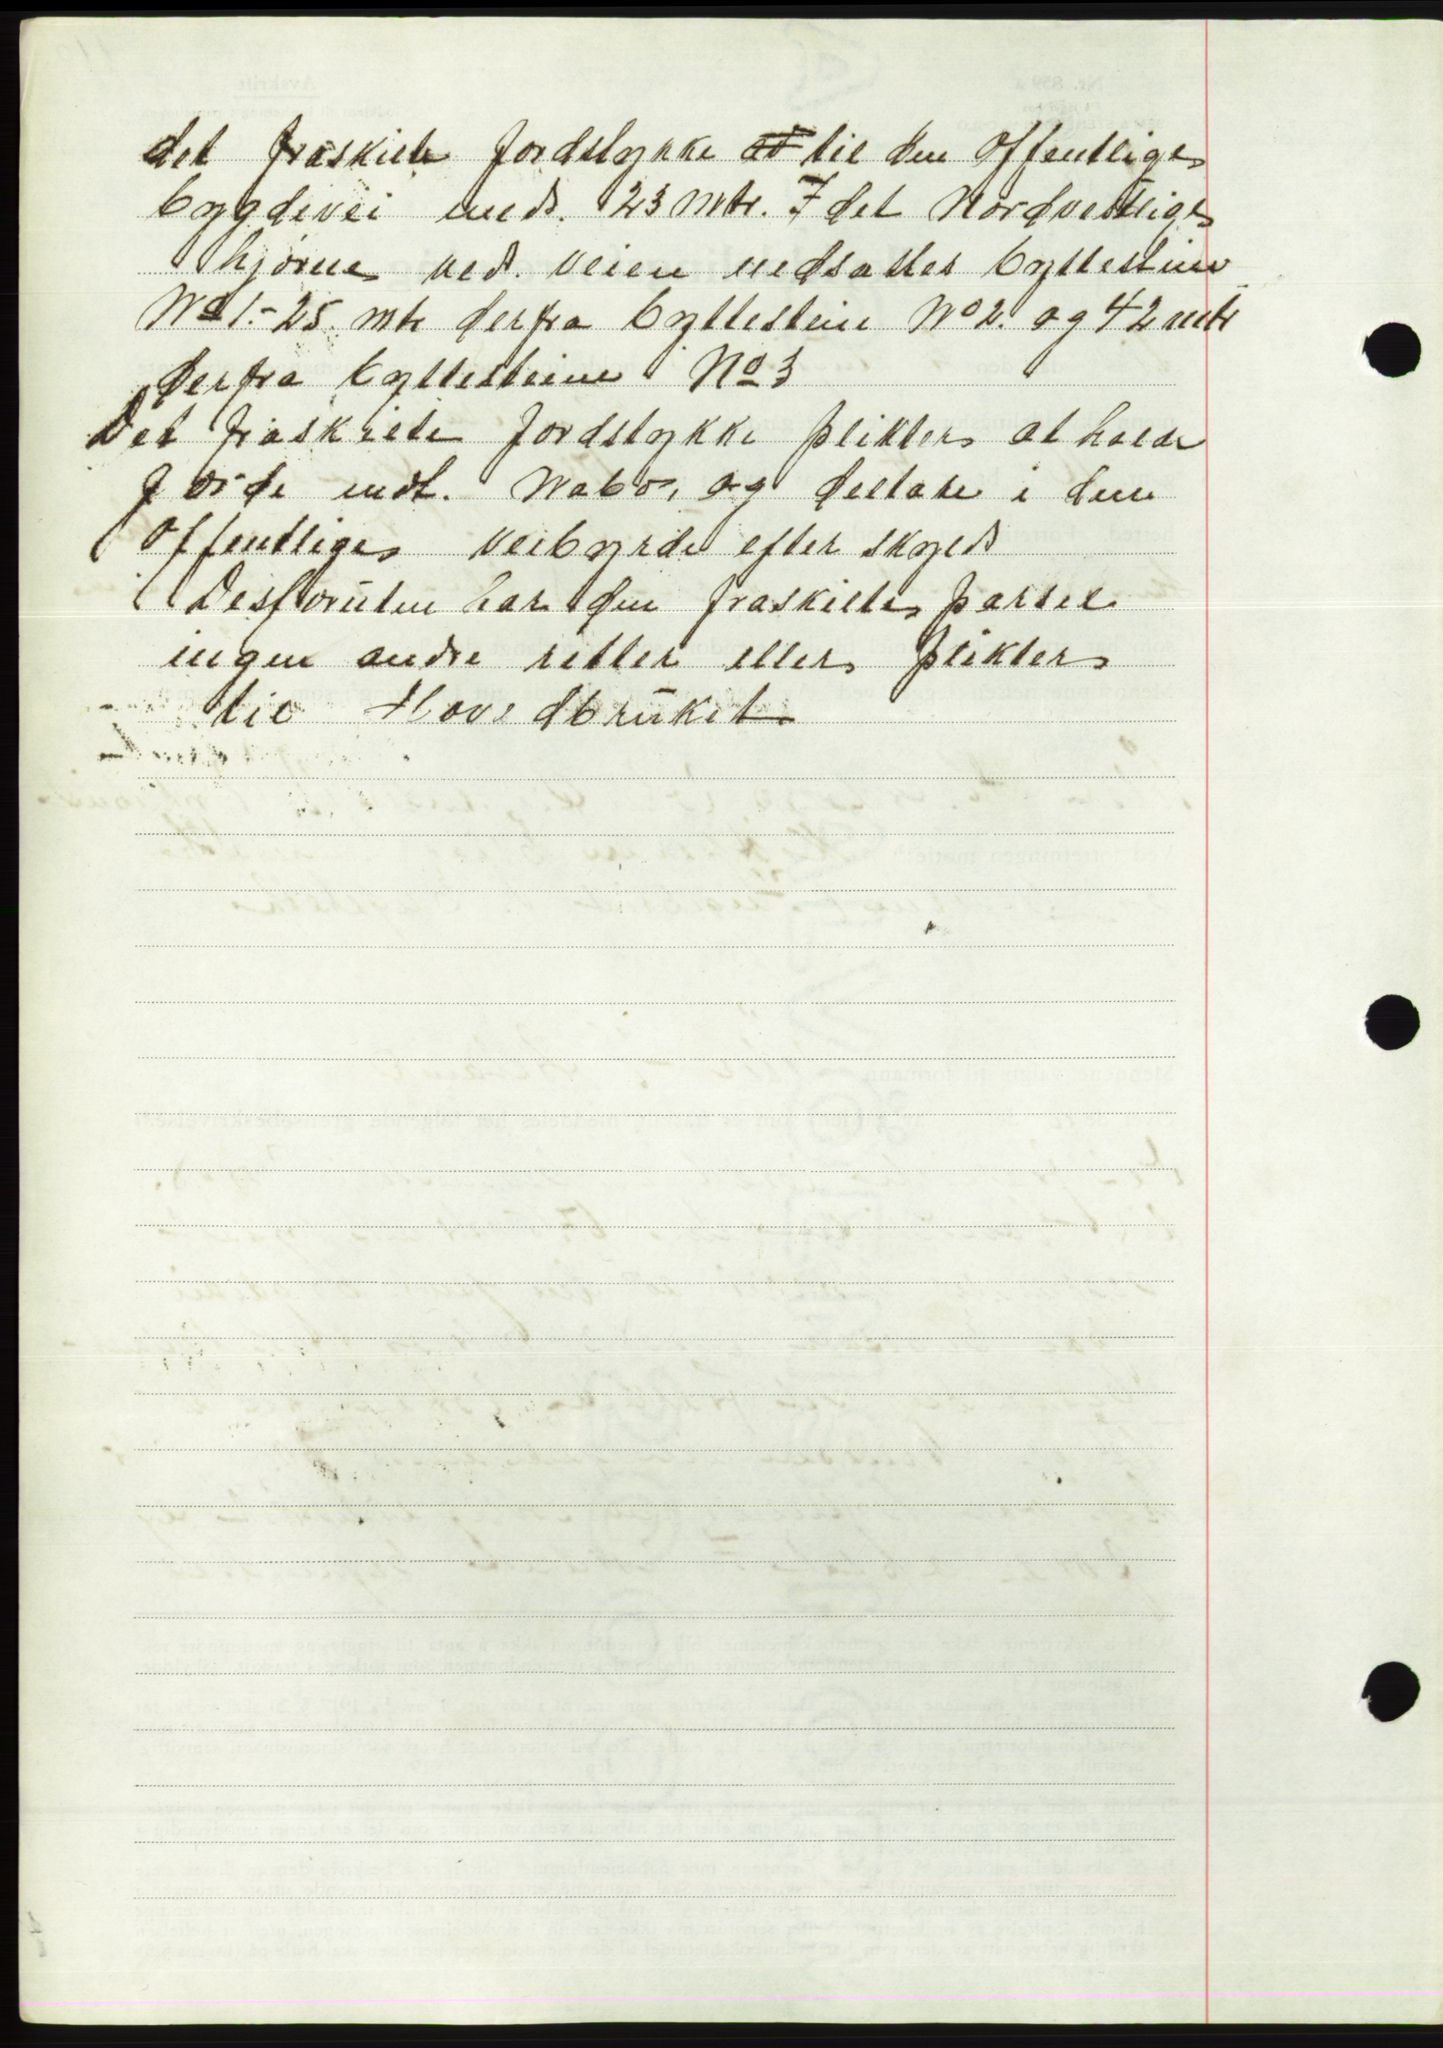 det fraskilte Jordstykke til den Offentlige
bygdevei med. 23 Mtr. I det Nordvestlige
hjørne ved. veien nedsattes byttestein
No 1.- 25. mtr derfra byttestein No 2. og 42 mtr
derfra byttestein No 3
Det fraskilte Jordstykke plikter at holde
gjærde mdt. Nabo, og deltake i den
offentlige veibyrde efter skyld
Desforuten har den fraskilte parsel
ingen andre retter eller plikter
til Hovedbruket